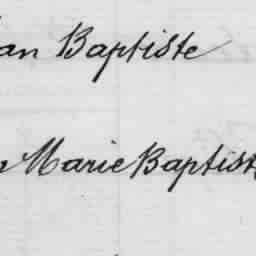 an Baptiste
Marie Baptist